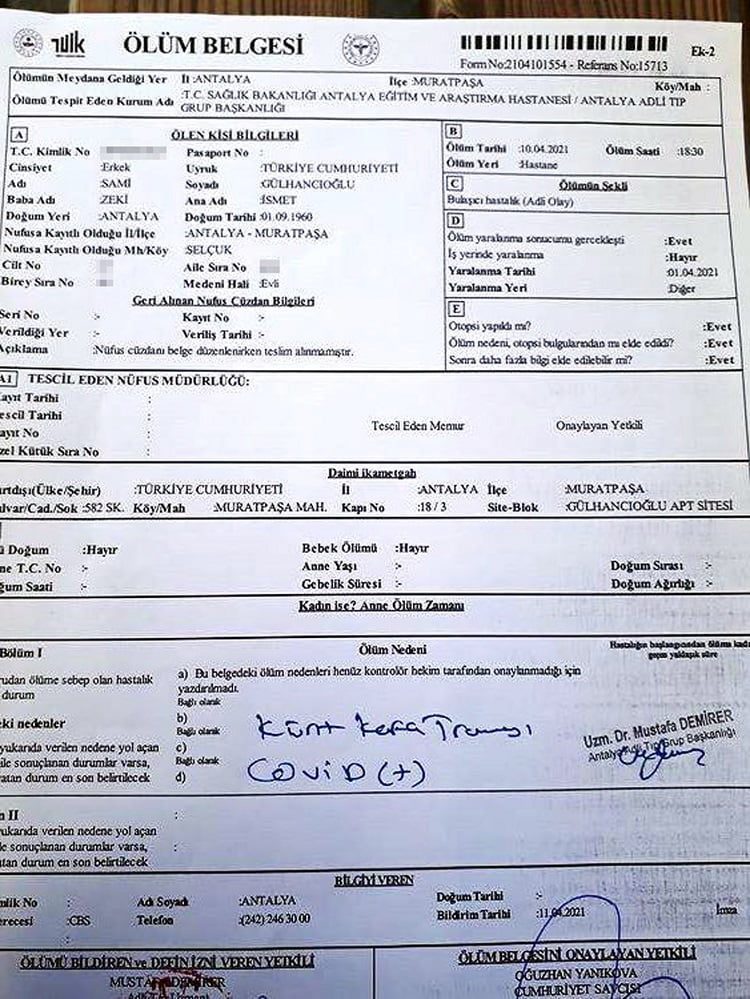 TÜİK ÖLÜM BELGESİ
Form No:2104101554 - Referans No:15713 Ek-2
Ölümün Meydana Geldiği Yer İl :ANTALYA İlçe :MURATPAŞA Köy/Mah :
Ölümü Tespit Eden Kurum Adı :T.C. SAĞLIK BAKANLIĞI ANTALYA EĞİTİM VE ARAŞTIRMA HASTANESİ / ANTALYA ADLİ TIP
GRUP BAŞKANLIĞI
A ÖLEN KİŞİ BİLGİLERİ
T.C. Kimlik No Pasaport No :
Cinsiyet :Erkek Uyruk :TÜRKİYE CUMHURİYETİ
Adı :SAMİ Soyadı :GÜLHANCIOĞLU
Baba Adı :ZEKİ Ana Adı :İSMET
Doğum Yeri :ANTALYA Doğum Tarihi :01.09.1960
Nufusa Kayıtlı Olduğu İl/İlçe :ANTALYA - MURATPAŞA
Nufusa Kayıtlı Olduğu Mh/Köy :SELÇUK
Cilt No Aile Sıra No
Birey Sıra No Medeni Hali :Evli
Geri Alınan Nufus Cüzdan Bilgileri
Seri No :- Kayıt No :-
Verildiği Yer :- Veriliş Tarihi :-
Açıklama :Nüfus cüzdanı belge düzenlenirken teslim alınmamıştır.
B
Ölüm Tarihi :10.04.2021 Ölüm Saati :18:30
Ölüm Yeri :Hastane
C Ölümün Şekli
Bulaşıcı hastalık (Adli Olay)
D
Ölüm yaralanma sonucumu gerçekleşti :Evet
İş yerinde yaralanma :Hayır
Yaralanma Tarihi :01.04.2021
Yaralanma Yeri :Diğer
E
Otopsi yapıldı mı? :Evet
Ölüm nedeni, otopsi bulgularından mı elde edildi? :Evet
Sonra daha fazla bilgi elde edilebilir mi? :Evet
A1 TESCİL EDEN NÜFUS MÜDÜRLÜĞÜ:
ayıt Tarihi :
escil Tarihi :
ayıt No : Tescil Eden Memur Onaylayan Yetkili
zel Kütük Sıra No :
Daimi ikametgah
urtdışı(Ülke/Şehir) :TÜRKİYE CUMHURİYETİ İl :ANTALYA İlçe :MURATPAŞA
ulvar/Cad./Sok :582 SK. Köy/Mah :MURATPAŞA MAH. Kapı No :18 / 3 Site-Blok :GÜLHANCIOĞLU APT SİTESİ
ü Doğum :Hayır Bebek Ölümü :Hayır
ne T.C. No :- Anne Yaşı :- Doğum Sırası :-
ğum Saati :- Gebelik Süresi :- Doğum Ağırlığı :-
Kadın ise? Anne Ölüm Zamanı
Bölüm I Ölüm Nedeni Hastalığın başlangıcından ölüme kada
geçen yaklaşık süre
rudan ölüme sebep olan hastalık
durum
a) Bu belgedeki ölüm nedenleri henüz kontrolör hekim tarafından onaylanmadığı için
yazdırılmadı.
Bağlı olarak
eki nedenler
b) Künt Kafa Travması
Bağlı olarak
yukarıda verilen nedene yol açan
ile sonuçlanan durumlar varsa,
atan durum en son belirtilecek
c)
Bağlı olarak
d) COViD (+)
Uzm. Dr. Mustafa DEMİRER
Antalya Adli Tıp Grup Başkanlığı
n II :
ukarıda verilen nedene yol açan
le sonuçlanan durumlar varsa, :
atan durum en son belirtilecek
BİLGİYİ VEREN
mlik No : Adı Soyadı :ANTALYA Doğum Tarihi :-
erecesi :CBS Telefon :(242) 246 30 00 Bildirim Tarihi :11.04.2021 İmza
ÖLÜMÜ BİLDİREN ve DEFİN İZNİ VEREN YETKİLİ
MUSTAFA DEMİRER
Adli Tıp Uzmanı
ÖLÜM BELGESİNİ ONAYLAYAN YETKİLİ
OĞUZHAN YANIKOVA
CUMHURİYET SAVCISI